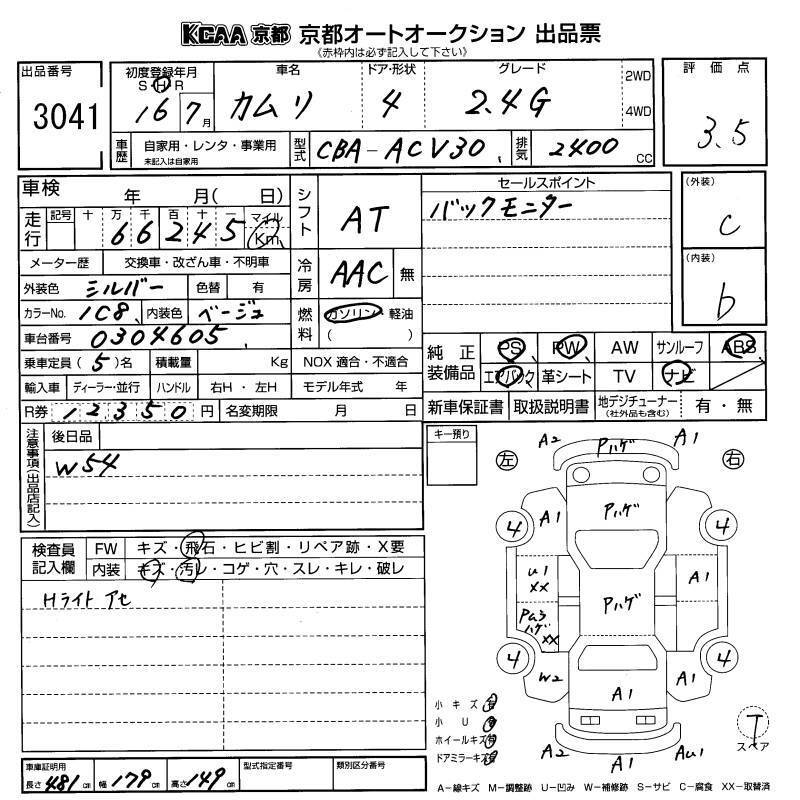 KCAA 京都 京都オートオークション 出品票
《赤枠内は必ず記入して下さい》
出品番号
3041
初度登録年月
S H R
16 7月
車名
カムリ
ドア・形状
4
グレード
2.4G
2WD
4WD
評価点
3.5
車歴
自家用・レンタ・事業用
未記入は自家用
型式
CBA-ACV30
排気
2400 CC
車検 年 月( 日)
走行
記号 十 万 千 百 十 一 マイル
66245 Km
メーター歴 交換車・改ざん車・不明車
外装色 シルバー 色替 有
カラーNo. 1C8 内装色 ベージュ
車台番号 0304605
乗車定員 (5)名 積載量 Kg
輸入車 ディーラー・並行 ハンドル 右H・左H
R券 12350 円 名変期限 月 日
シフト AT
冷房 AAC 無
燃料 ガソリン・軽油
( )
NOX 適合・不適合
モデル年式 年
セールスポイント
バックモニター
(外装)
C
(内装)
b
純正装備品
PS PW AW サンルーフ ABS
エアバック 革シート TV ナビ
新車保証書 取扱説明書 地デジチューナー(社外品も含む) 有・無
注意事項(出品店記入)
後日品
W54
キー預り
左 右
A2 Pハゲ A1
4 A1 Pハゲ 4
U1 XX
A1
Pハゲ
Pa3 ハゲ XX
4 W2 A1 A1 4
A2 A1 AU1
T
スペア
検査員記入欄
FW キズ・飛石・ヒビ割・リペア跡・X要
内装 キズ・汚レ・コゲ・穴・スレ・キレ・破レ
Hライト アセ
小キズ 有
小U 有
ホイールキズ 有
ドアミラーキズ 有
車庫証明用
長さ 481 cm 幅 179 cm 高さ 149 cm
型式指定番号
類別区分番号
A−線キズ M−調整跡 U−凹み W−補修跡 S−サビ C−腐食 XX−取替済